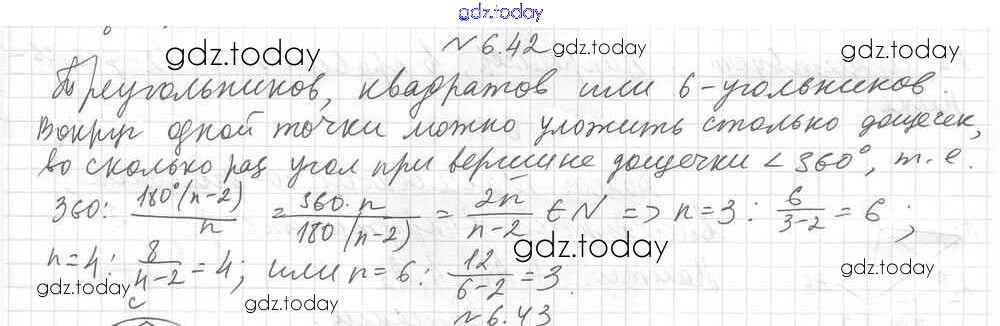 gdz.today
№ 6.42 gdz.today
gdz.today
Треугольников, квадратов или 6-угольников.
gdz.today
Вокруг одной точки можно уложить столько дощечек,
во сколько раз угол при вершине дощечки < 360°, т.е.
360: 180°(n-2)/n = 360·n/180(n-2) = 2n/n-2 ∈ N => n=3: 6/3-2 = 6;
gdz.today
n=4: 8/4-2 = 4; или n=6: 12/6-2 = 3.
gdz.today gdz.today gdz.today
с
№ 6.43